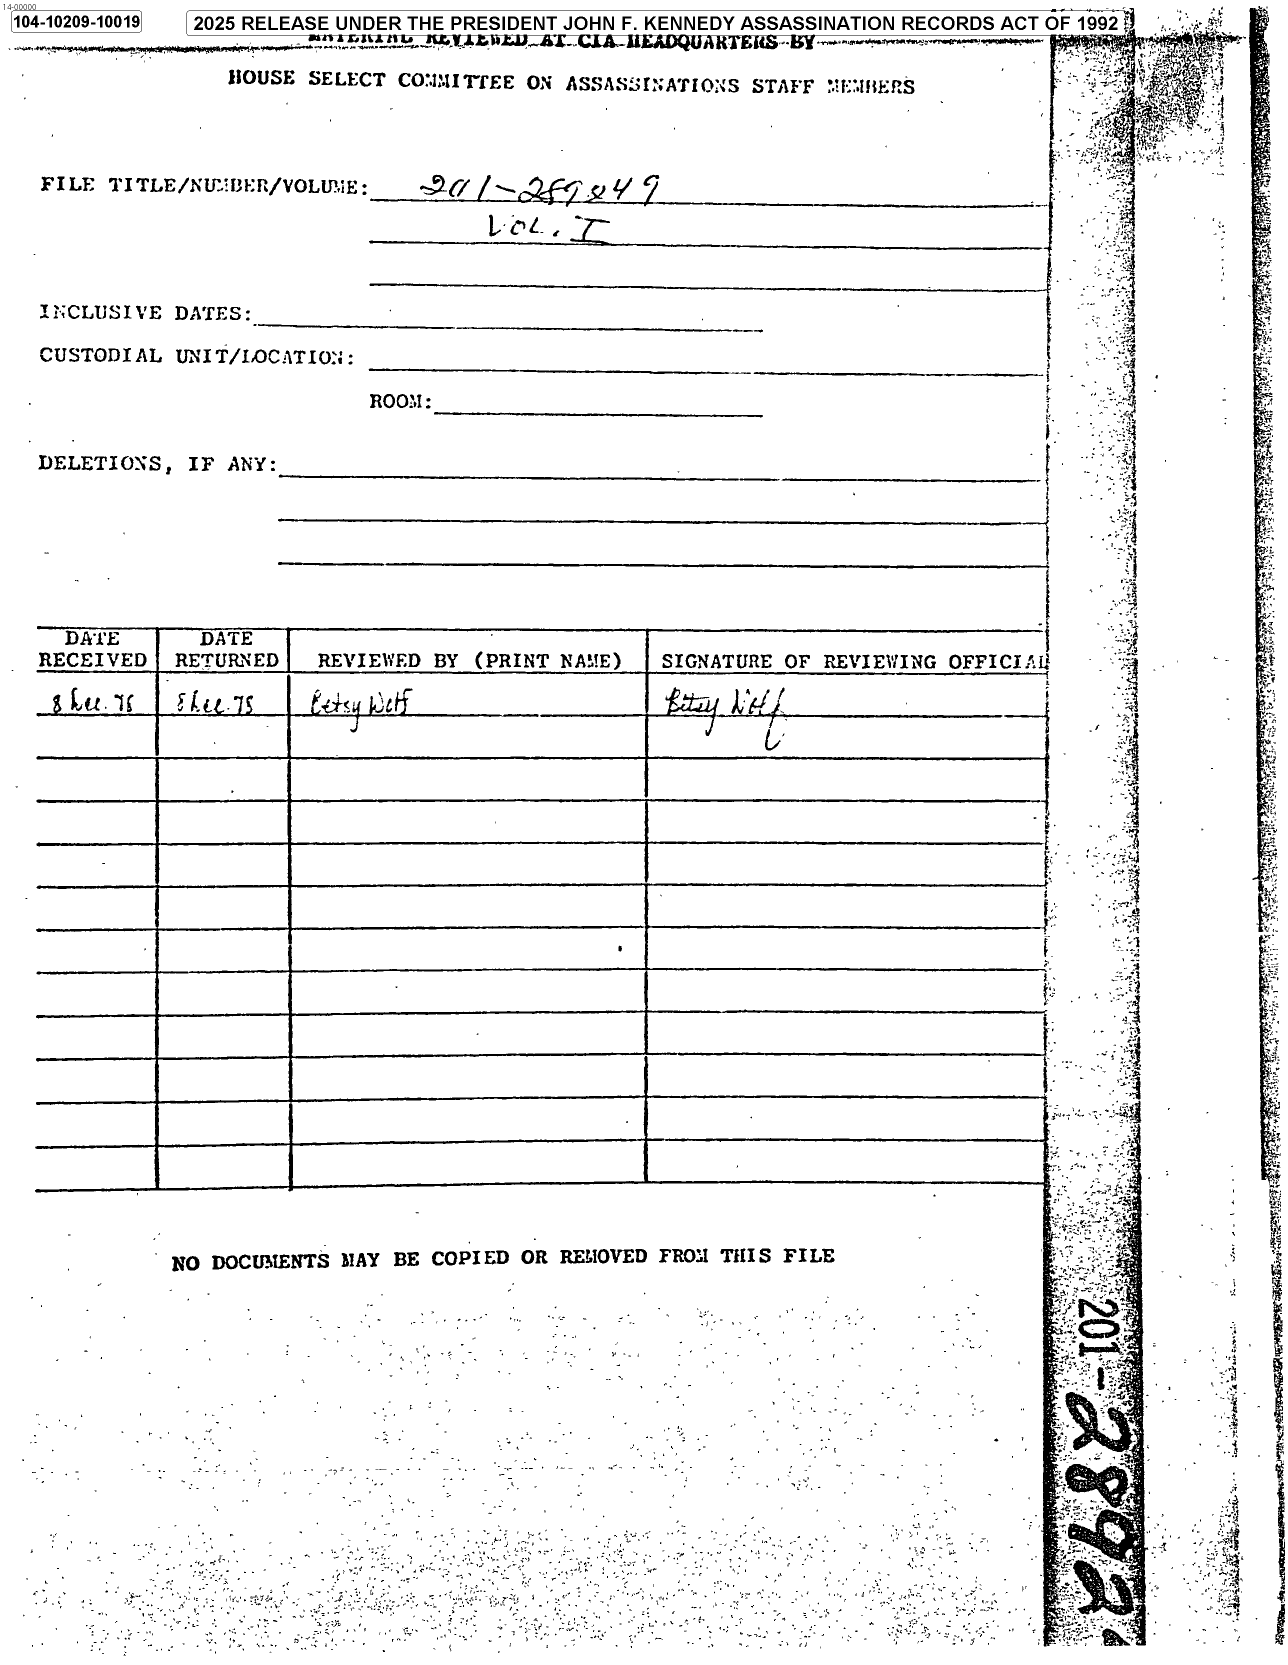 14-00000
104-10209-10019
2025 RELEASE UNDER THE PRESIDENT JOHN F. KENNEDY ASSASSINATION RECORDS ACT OF 1992
MATERIAL REVIEWED AT CIA HEADQUARTERS BY
HOUSE SELECT COMMITTEE ON ASSASSINATIONS STAFF MEMBERS
FILE TITLE/NUMBER/VOLUME: 201-289249
VOL. I
INCLUSIVE DATES:
CUSTODIAL UNIT/LOCATION:
ROOM:
DELETIONS, IF ANY:
DATE RECEIVED
DATE RETURNED
REVIEWED BY (PRINT NAME)
SIGNATURE OF REVIEWING OFFICIAL
8 Dec. 78 8 Dec. 78 Betsy Wolf Betsy Wolf
NO DOCUMENTS MAY BE COPIED OR REMOVED FROM THIS FILE
201-2892